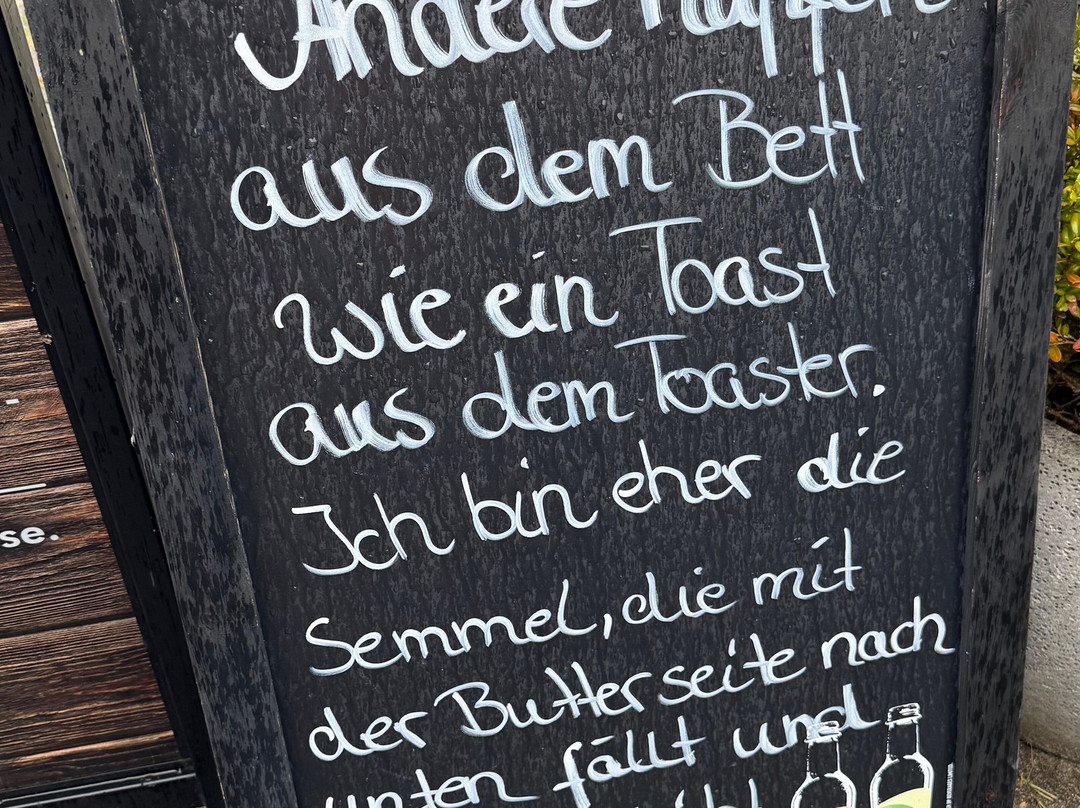 Andere hüpfen
aus dem Bett
wie ein Toast
aus dem Toaster.
Ich bin eher die
Semmel, die mit
der Butterseite nach
unten fällt und
se.